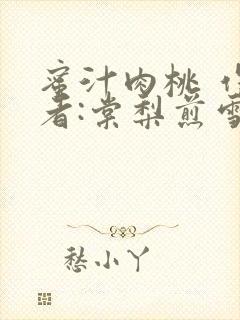 蜜汁肉桃 作
者:棠梨煎雪
愁小丫